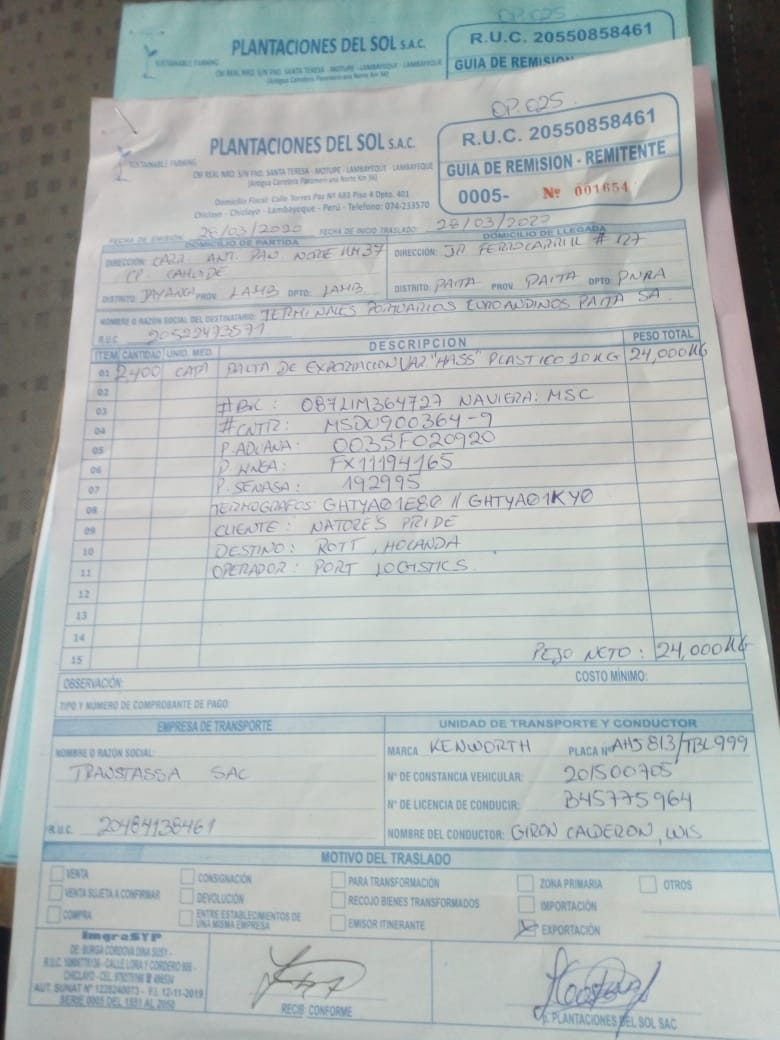 OP. 025
PLANTACIONES DEL SOL S.A.C.
SUSTAINABLE FARMING
CM REAL NRO. S/N FND. SANTA TERESA - MOTUPE - LAMBAYEQUE - LAMBAYEQUE
(Antigua Carretera Panamericana Norte Km 36)
R.U.C. 20550858461
GUIA DE REMISION
OP. 025
PLANTACIONES DEL SOL S.A.C.
SUSTAINABLE FARMING
CM REAL NRO. S/N FND. SANTA TERESA - MOTUPE - LAMBAYEQUE - LAMBAYEQUE
(Antigua Carretera Panamericana Norte Km 36)
Domicilio Fiscal: Calle Torres Paz Nº 683 Piso 4 Dpto. 401
Chiclayo - Chiclayo - Lambayeque - Perú - Telefono: 074-233570
R.U.C. 20550858461
GUIA DE REMISION - REMITENTE
0005- Nº 001654
FECHA DE EMISIÓN: 28/03/2020 FECHA DE INICIO TRASLADO: 28/03/2020
DOMICILIO DE PARTIDA DOMICILIO DE LLEGADA
DIRECCIÓN: CARR. ANT. PAN. NORTE KM.37
CP. CAHUDE
DISTRITO: JAYANCA PROV LAMB DPTO: LAMB.
DIRECCIÓN: JR FERROCARRIL # 127
DISTRITO: PAITA PROV PAITA DPTO: PIURA
NOMBRE O RAZÓN SOCIAL DEL DESTINATARIO: TERMINALES PORTUARIOS EUROANDINOS PAITA SA.
R.U.C 20522473571
ITEM CANTIDAD UNID. MED. DESCRIPCION PESO TOTAL
01 2,400 CAJA PALTA DE EXPORTACION VAR. "HASS" PLASTICO 10KG 24,000KG
02
03 #BK: 087LIM364727 NAVIERA: MSC
04 #CNTR: MSDU900364-9
05 P. ADUANA: 003SF020920
06 P. LINEA: FX11194165
07 P. SENASA: 192995
08 TERMOGRAFOS: GHTYA01E80 // GHTYA01KY0
09 CLIENTE: NATURE'S PRIDE
10 DESTINO: ROTT, HOLANDA
11 OPERADOR: PORT LOGISTICS
12
13
14
15 PESO NETO: 24,000KG
OBSERVACIÓN: COSTO MÍNIMO:
TIPO Y NÚMERO DE COMPROBANTE DE PAGO:
EMPRESA DE TRANSPORTE
NOMBRE O RAZÓN SOCIAL:
TRANSTASSA SAC
R.U.C. 20484138461
UNIDAD DE TRANSPORTE Y CONDUCTOR
MARCA KENWORTH PLACA Nº AHJ813/TBL999
Nº DE CONSTANCIA VEHICULAR: 201500705
Nº DE LICENCIA DE CONDUCIR: B45775964
NOMBRE DEL CONDUCTOR: GIRON CALDERON, LUIS
MOTIVO DEL TRASLADO
VENTA CONSIGNACIÓN PARA TRANSFORMACIÓN ZONA PRIMARIA OTROS
VENTA SUJETA A CONFIRMAR DEVOLUCIÓN RECOJO BIENES TRANSFORMADOS IMPORTACIÓN
COMPRA ENTRE ESTABLECIMIENTOS DE
UNA MISMA EMPRESA EMISOR ITINERANTE EXPORTACIÓN
ImgraSYP
DE: BURGA CORDOVA DINA SUSY -
CALLE LORA Y CORDERO
AUT. SUNAT Nº F.I. 12-11-2019
SERIE 0005 DEL 1551 AL 2050
RECIBÍ CONFORME
p. PLANTACIONES DEL SOL SAC